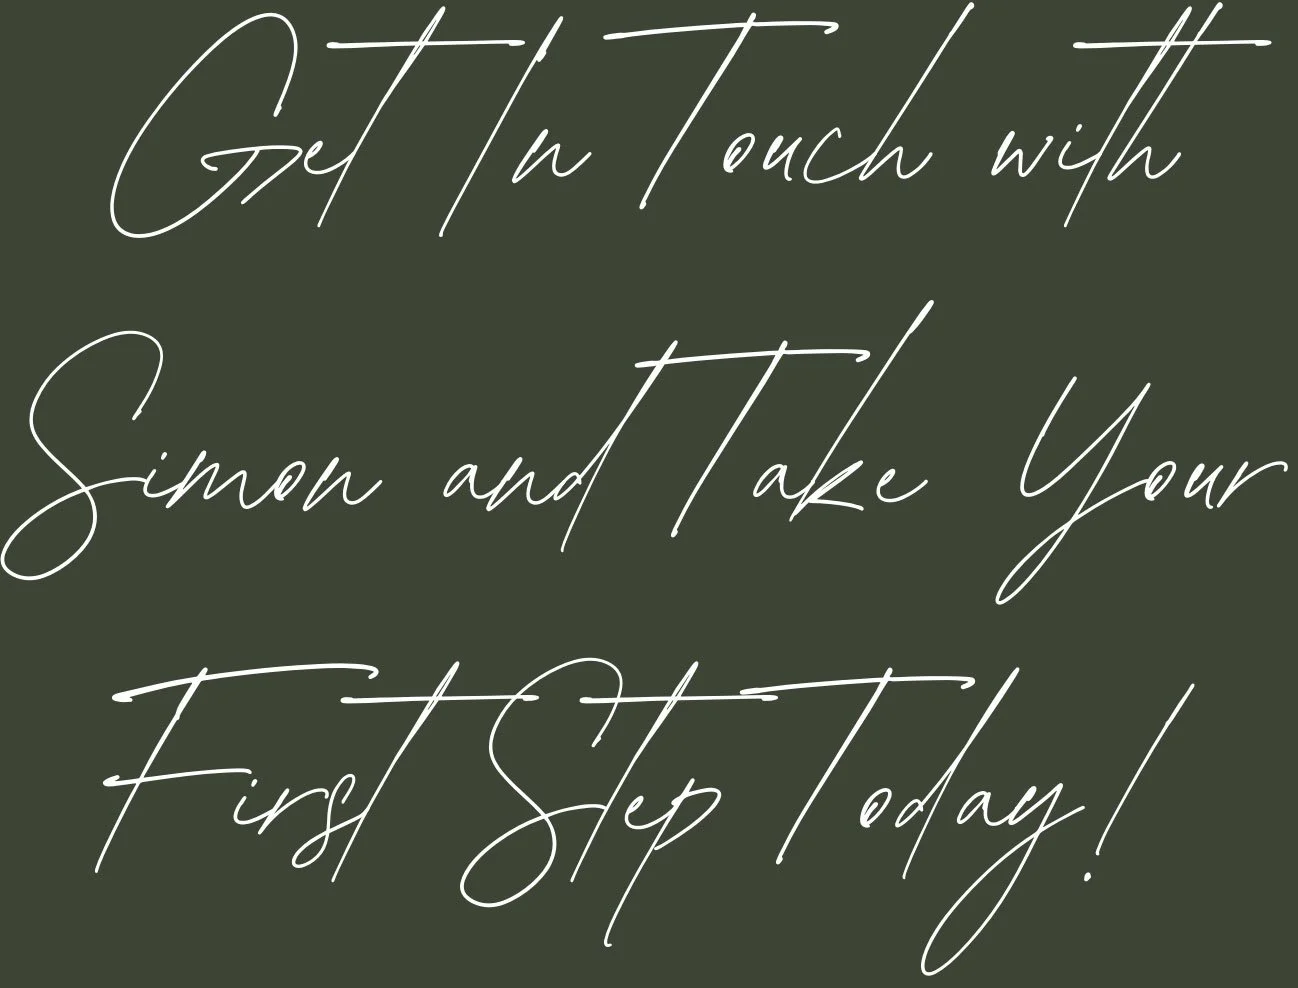 Get In Touch with
Simon and Take Your
First Step Today!